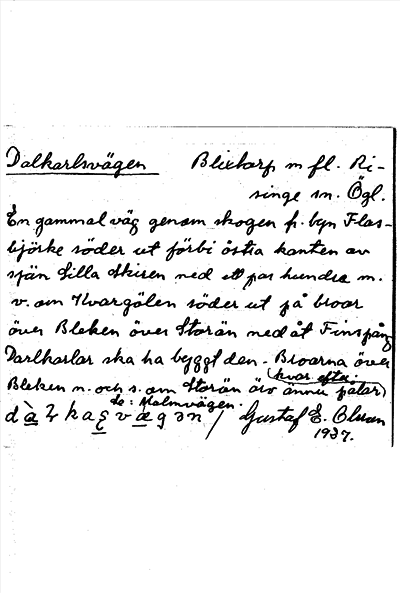 Dalkarlsvägen Blixtorp m fl. Ri-
singe sn. Ögl.
En gammal väg genom skogen fr. byn Flas-
björke söder ut förbi östra kanten av
sjön Lilla Skiren ned ett par hundra m.
v. om Kvarngölen söder ut på broar
över Bleken över Storån ned åt Finspång
Darlkarlar ska ha byggt den. Broarna över
(kvar efter)
Bleken n. och s. om Storån äro ännu pålar)
Se: Malmvägen.
/ Gustaf E. Olsson
1937.